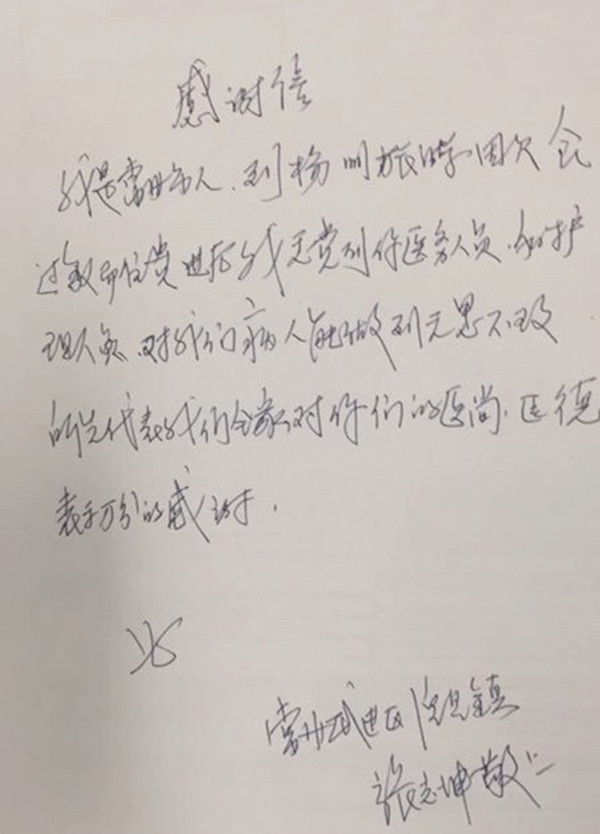 感谢信
我是常州市人、到扬州旅游因欠食
过敏而住院 进院我感觉到你医务人员、和护
理人员 对我们病人能做到无思不及
所以代表我们全家对你们的医尚、医德
表示万分的感谢.
此
常州武进区 镇
张志坤敬上